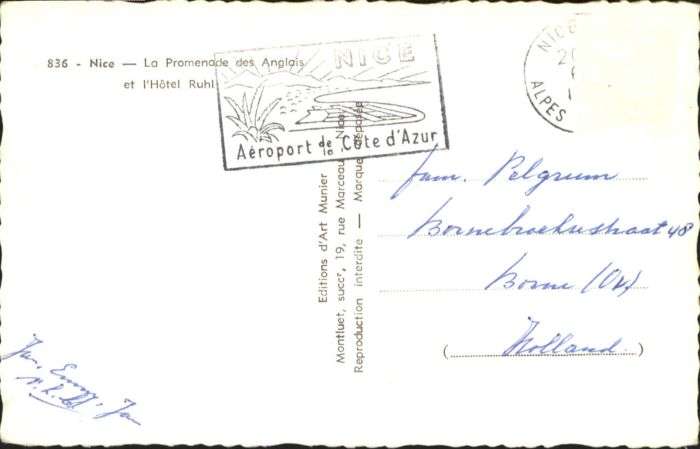 836 - Nice — La Promenade des Anglais
et l'Hôtel Ruhl
NICE
Aéroport de la Côte d'Azur
NICE
ALPES
Editions d'Art Munier
Montluet, succr, 19, rue Marceau, Nice
Reproduction interdite — Marque déposée
Fam. Pelgrum
Bornebroeksestraat 48
Borne (Ov)
(Holland.)